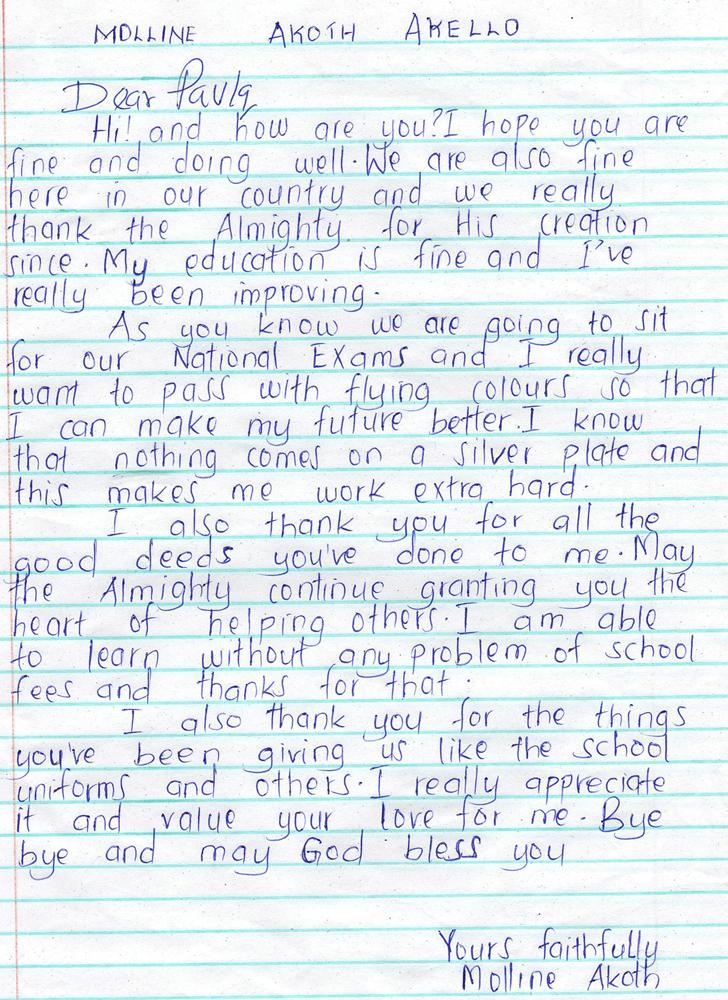 MOLLINE AKOTH AKELLO
Dear Paula
Hi! and how are you? I hope you are
fine and doing well. We are also fine
here in our country and we really
thank the Almighty for His creation
since. My education is fine and I've
really been improving.
As you know we are going to sit
for our National Exams and I really
want to pass with flying colours so that
I can make my future better. I know
that nothing comes on a silver plate and
this makes me work extra hard.
I also thank you for all the
good deeds you've done to me. May
the Almighty continue granting you the
heart of helping others. I am able
to learn without any problem of school
fees and thanks for that.
I also thank you for the things
you've been giving us like the school
uniforms and others. I really appreciate
it and value your love for me. Bye
bye and may God bless you
Yours faithfully
Molline Akoth